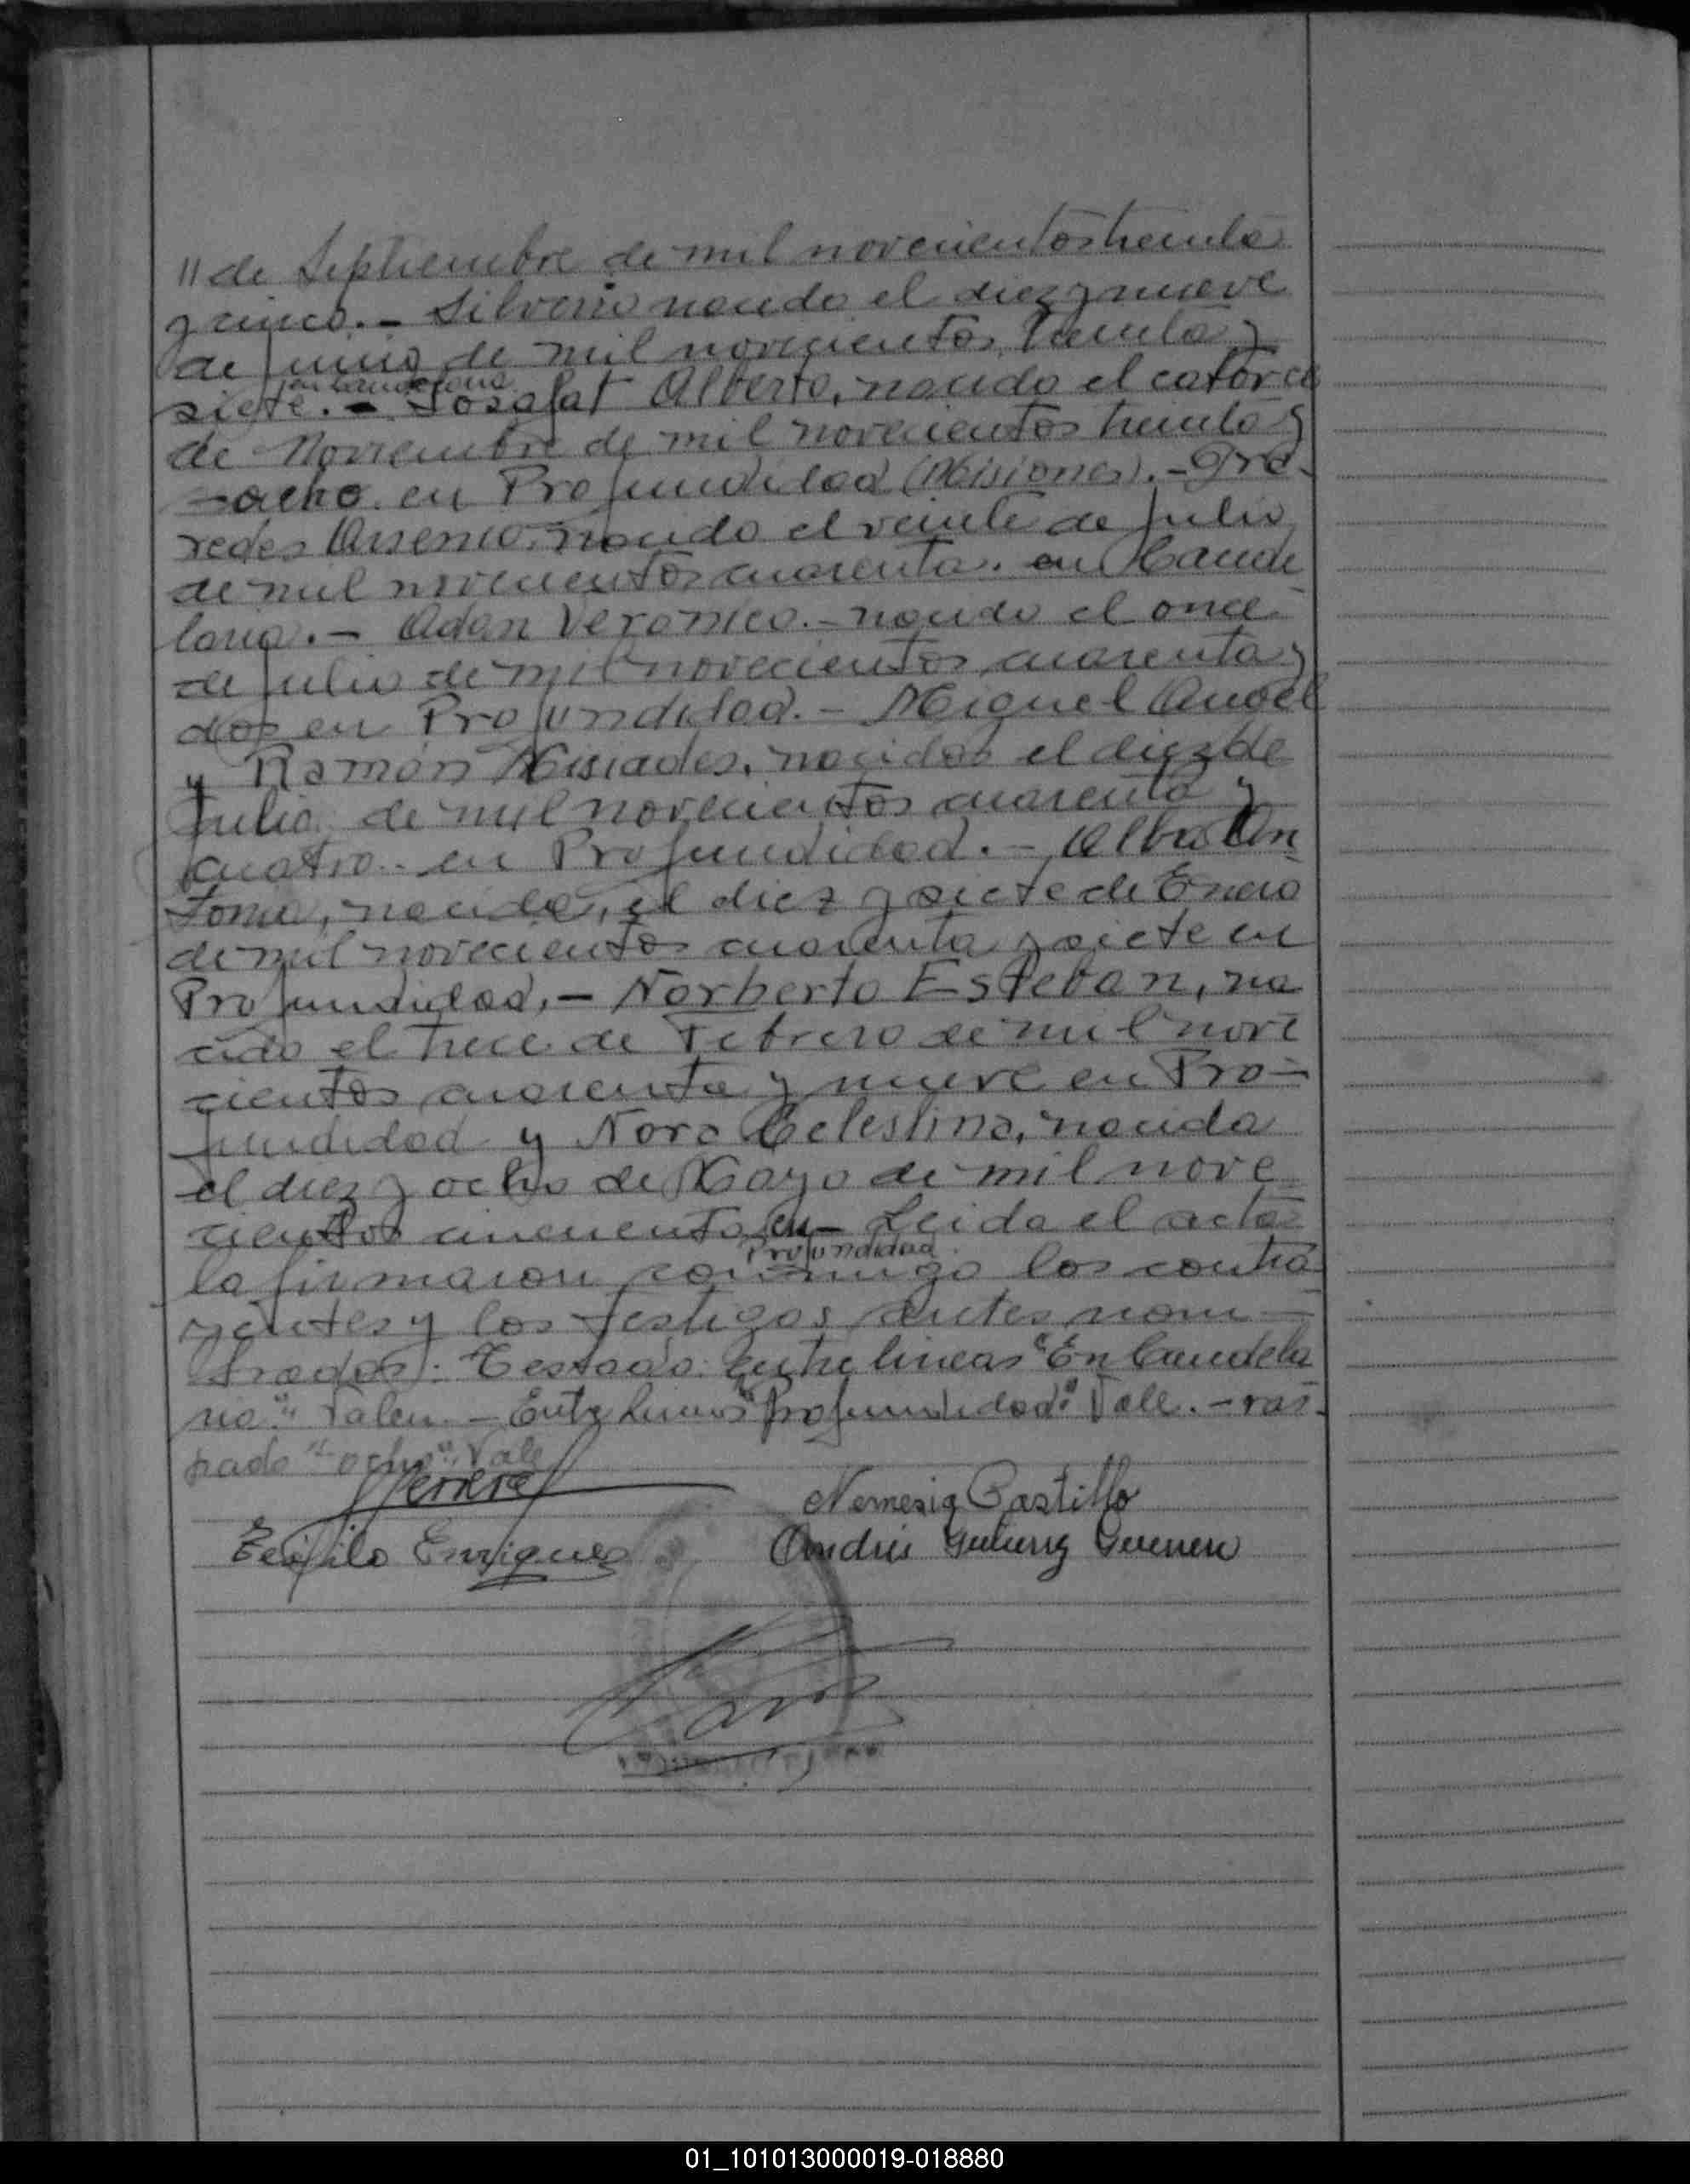 11 de Septiembre de mil novecientos treinta
y cinco. - Silverio nacido el diez y nueve
de Junio de mil novecientos, treinta y
en Candelaria
siete. - Josafat Alberto, nacido el catorce
de Noviembre de mil novecientos treinta y
ocho en Profundidad (Misiones). -
Arsenio, nacido el veinte de Julio
de mil novecientos cuarenta. en Cande
laria. - Adan Veronico. - nacido el once
de Julio de mil novecientos cuarenta y
dos en Profundidad. - Miguel Angel
y Ramón nacidos el diez de
Julio de mil novecientos cuarenta y
cuatro. en Profundidad. - Alba An
tonia, nacida, el diez y siete de Enero
de mil novecientos cuarenta y siete en
Profundidad. - Norberto Esteban, na
cido el trece de Febrero de mil nove
cientos cuarenta y nueve en Pro-
fundidad y Nora Celestina, nacida
el diez y ocho de Mayo de mil nove
cientos cincuenta en - Leida el acta
Profundidad.
la firmaron conmigo los contra
yentes y los testigos antes nom-
brados. Testado: Entre lineas "En Candela
ria" Valen. - Entre lineas "Profundidad" Vale. - ras
pado "ocho" Vale
Nemesia Castillo
Enriquez
Andrés
01_101013000019-018880